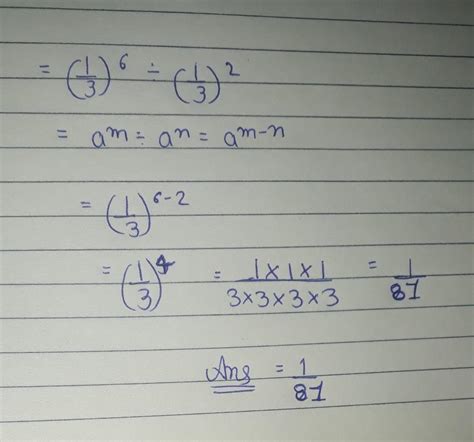 = (1/3)^6 ÷ (1/3)^2
= a^m ÷ a^n = a^m-n
= (1/3)^6-2
= (1/3)^4 = 1×1×1/3×3×3×3 = 1/81
Ans = 1/81